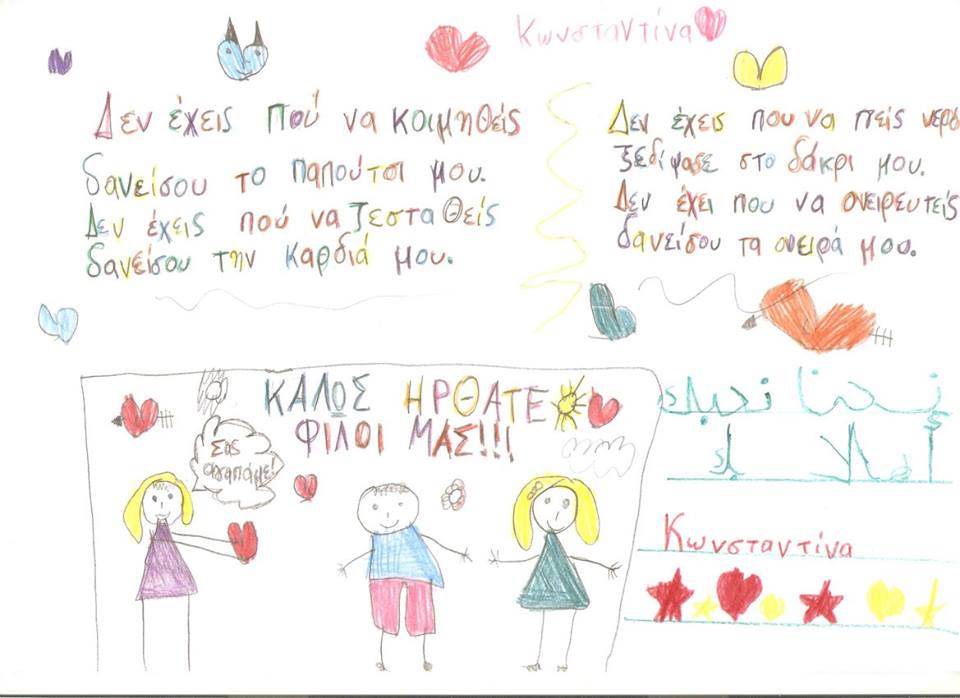 Κωνσταντίνα
Δεν έχεις πού να κοιμηθείς
δανείσου το παπούτσι μου.
Δεν έχεις πού να ζεσταθείς
δανείσου την καρδιά μου.
Δεν έχεις που να πιείς νερό
ξεδίψασε στο δάκρι μου.
Δεν έχει που να ονειρευτείς
δανείσου τα ονειρά μου.
ΚΑΛΟΣ ΗΡΘΑΤΕ
ΦΙΛΟΙ ΜΑΣ!!!
Σας
αγαπάμε!
نحنا نحبك
أهلا بك
Κωνσταντίνα